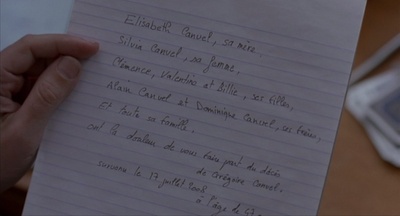 Elisabeth Canvel, sa mère,
Silvia Canvel, sa femme,
Clémence, Valentina et Billie, ses filles,
Alain Canvel et Dominique Canvel, ses frères,
Et toute sa famille,
ont la douleur de vous faire part du décès
de Grégoire Canvel,
survenu le 17 juillet 2008
à l'âge de 47